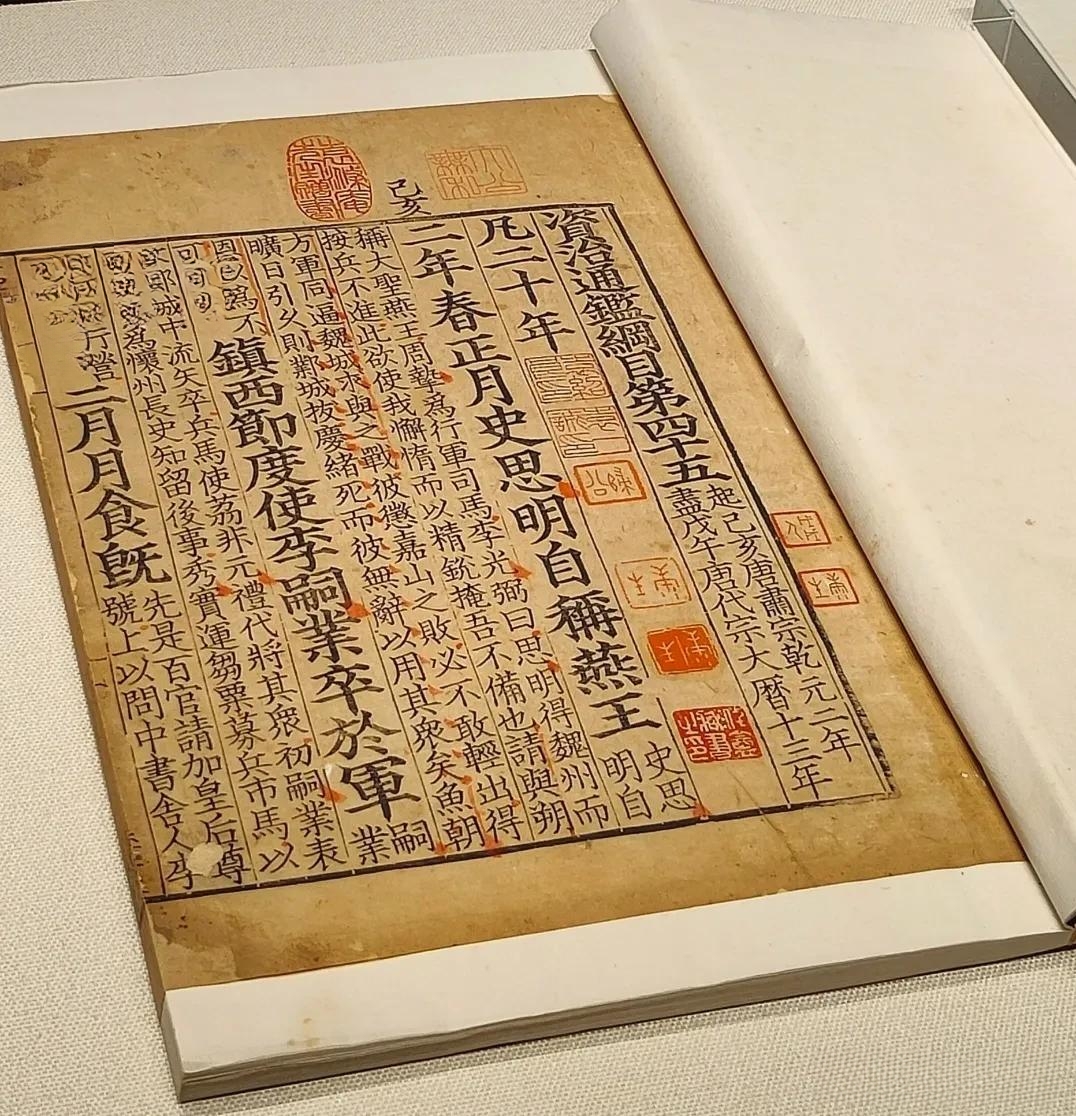 資治通鑑綱目第四十五
起己亥唐肅宗乾元二年
盡戊午唐代宗大曆十三年
凡二十年
己亥
二年春正月史思明自稱燕王
史思
明自
稱大聖燕王周摯為行軍司馬李光弼曰思明得魏州而
按兵不進此欲使我懈惰而以精銳掩吾不備也請與朔
方軍同逼魏城求與之戰彼懲嘉山之敗必不敢輕出得
曠日引久則鄴城拔慶緒死而彼無辭以用其衆矣魚朝
恩以為不
可
鎮西節度使李嗣業卒於軍
嗣
業
攻鄴城中流矢卒兵馬使荔非元禮代將其衆初嗣業表
為懷州長史知留後事秀實運芻粟募兵市馬以
行營
二月月食既
先是百官請加皇后尊
號上以問中書舍人李